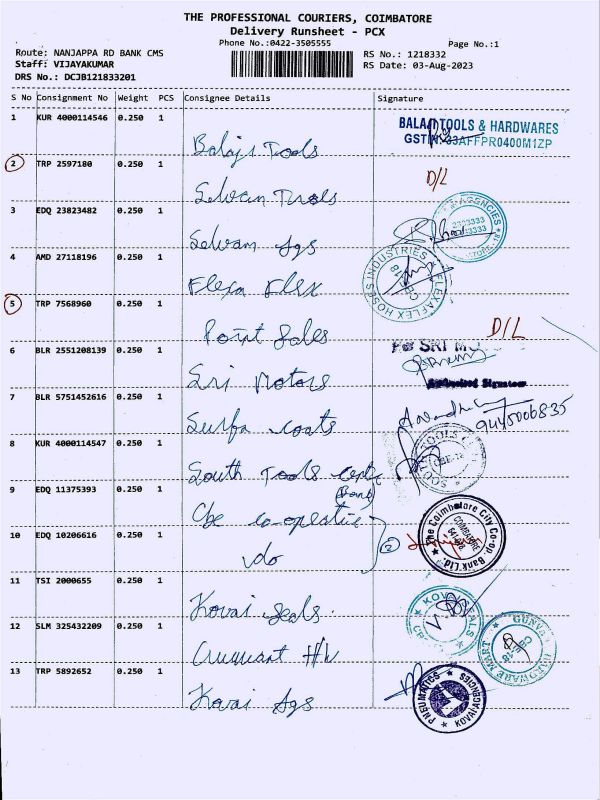 THE PROFESSIONAL COURIERS, COIMBATORE
Delivery Runsheet - PCX
Phone No.:0422-3505555
Page No.:1
Route: NANJAPPA RD BANK CMS
RS No.: 1218332
Staff: VIJAYAKUMAR
RS Date: 03-Aug-2023
DRS No.: DCJB121833201
S No Consignment No Weight PCS Consignee Details Signature
1 KUR 4000114546 0.250 1
Balaji Tools
BALAJI TOOLS & HARDWARES
GSTIN:33AFFPR0400M1ZP
2 TRP 2597180 0.250 1
Selvam Tools
D/L
3 EDQ 23823482 0.250 1
Selvam Ags
AGENCIES
2333333
4 AMD 27118196 0.250 1
Flexa Flex
FLEXAFLEX HOSES INDUSTRIES
CBE-18
5 TRP 7568960 0.250 1
Point Sales
D/L
6 BLR 2551208139 0.250 1
Sri Motors
For SRI MO
Authorised Signatory
7 BLR 5751452616 0.250 1
Surfa coats
9445006835
8 KUR 4000114547 0.250 1
South Tools
SOUTH TOOLS
CBE-18
9 EDQ 11375393 0.250 1
Cbe co-operative
(Bank)
10 EDQ 10206616 0.250 1
do
2
The Coimbatore City Co-op. Bank Ltd.
COIMBATORE
641 018
11 TSI 2000655 0.250 1
Kovai Seals
KOVAI SEALS
12 SLM 325432209 0.250 1
HARDWARE MART
CBE-18
13 TRP 5892652 0.250 1
Kovai Ags
PNEUMATICS
KOVAI AGENCIES